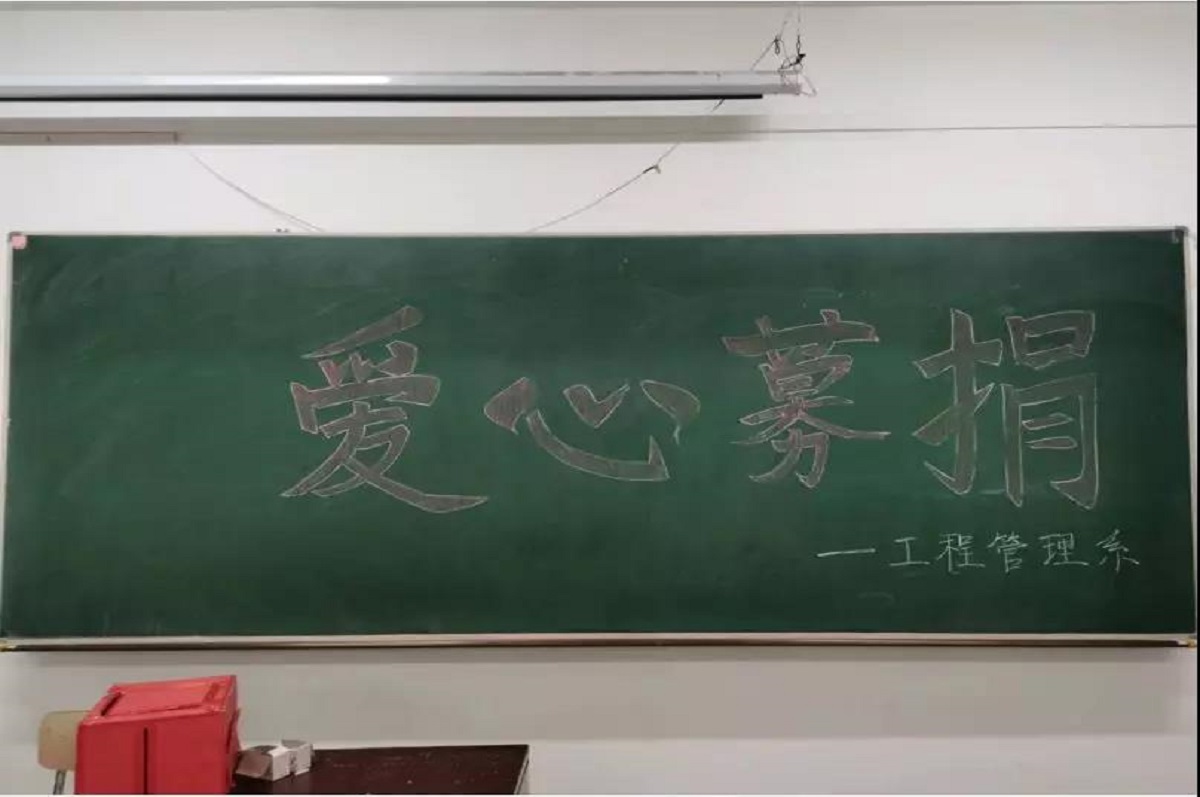 爱心募捐
—工程管理系